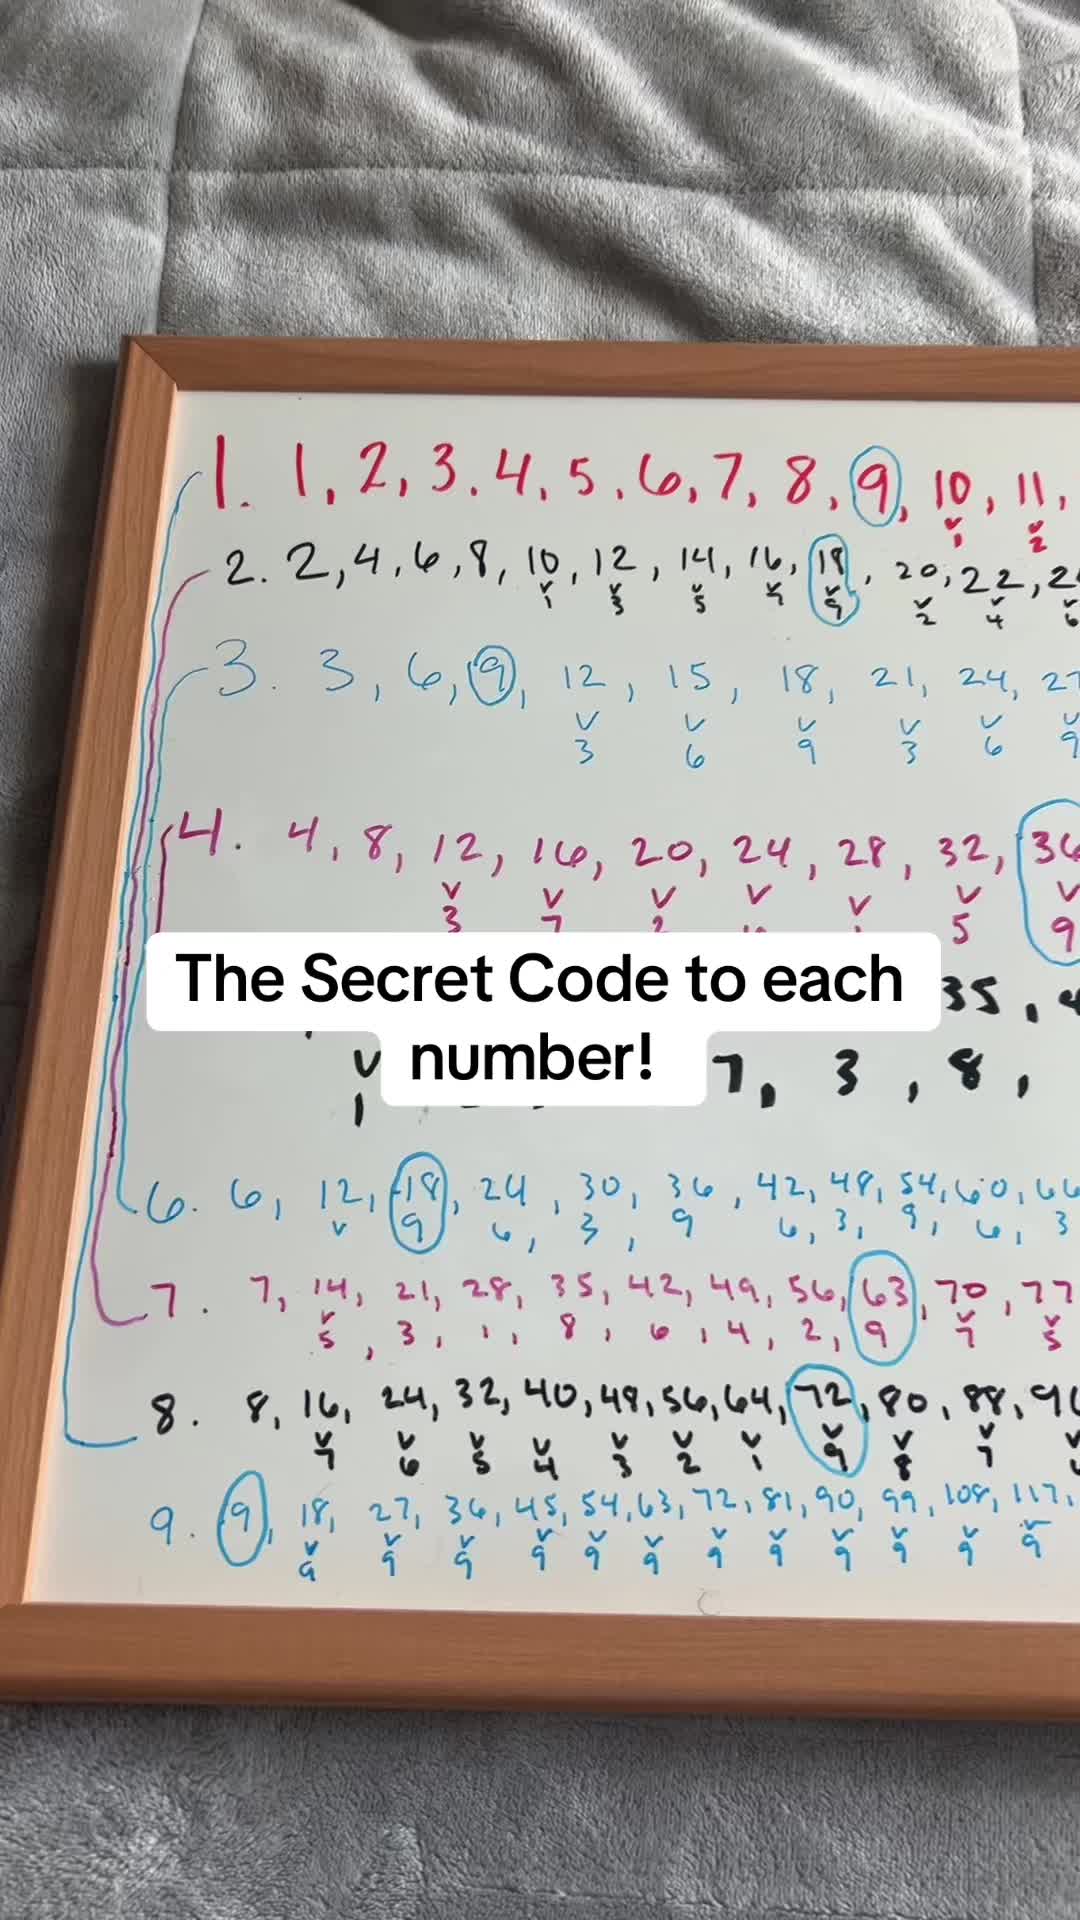 1. 1, 2, 3. 4, 5, 6, 7, 8, 9, 10, 11,
1 2
2. 2, 4, 6, 8, 10, 12, 14, 16, 18, 20, 22, 2
1 3 5 9 2 4 6
3. 3, 6, 9, 12, 15, 18, 21, 24, 27
3 6 9 3 6 9
4. 4, 8, 12, 16, 20, 24, 28, 32, 36
3 7 2 5 9
The Secret Code to each
number!
35, 4
1 7, 3, 8,
6. 6, 12, 18, 24, 30, 36, 42, 48, 54, 60, 66
9 6, 3, 9 6, 3, 9, 6, 3
7. 7, 14, 21, 28, 35, 42, 49, 56, 63, 70, 77
5, 3, 1, 8, 6, 4, 2, 9 7 5
8. 8, 16, 24, 32, 40, 48, 56, 64, 72, 80, 88, 96
7 6 5 4 3 2 1 9 8 7
9. 9, 18, 27, 36, 45, 54, 63, 72, 81, 90, 99, 108, 117,
9 9 9 9 9 9 9 9 9 9 9 9